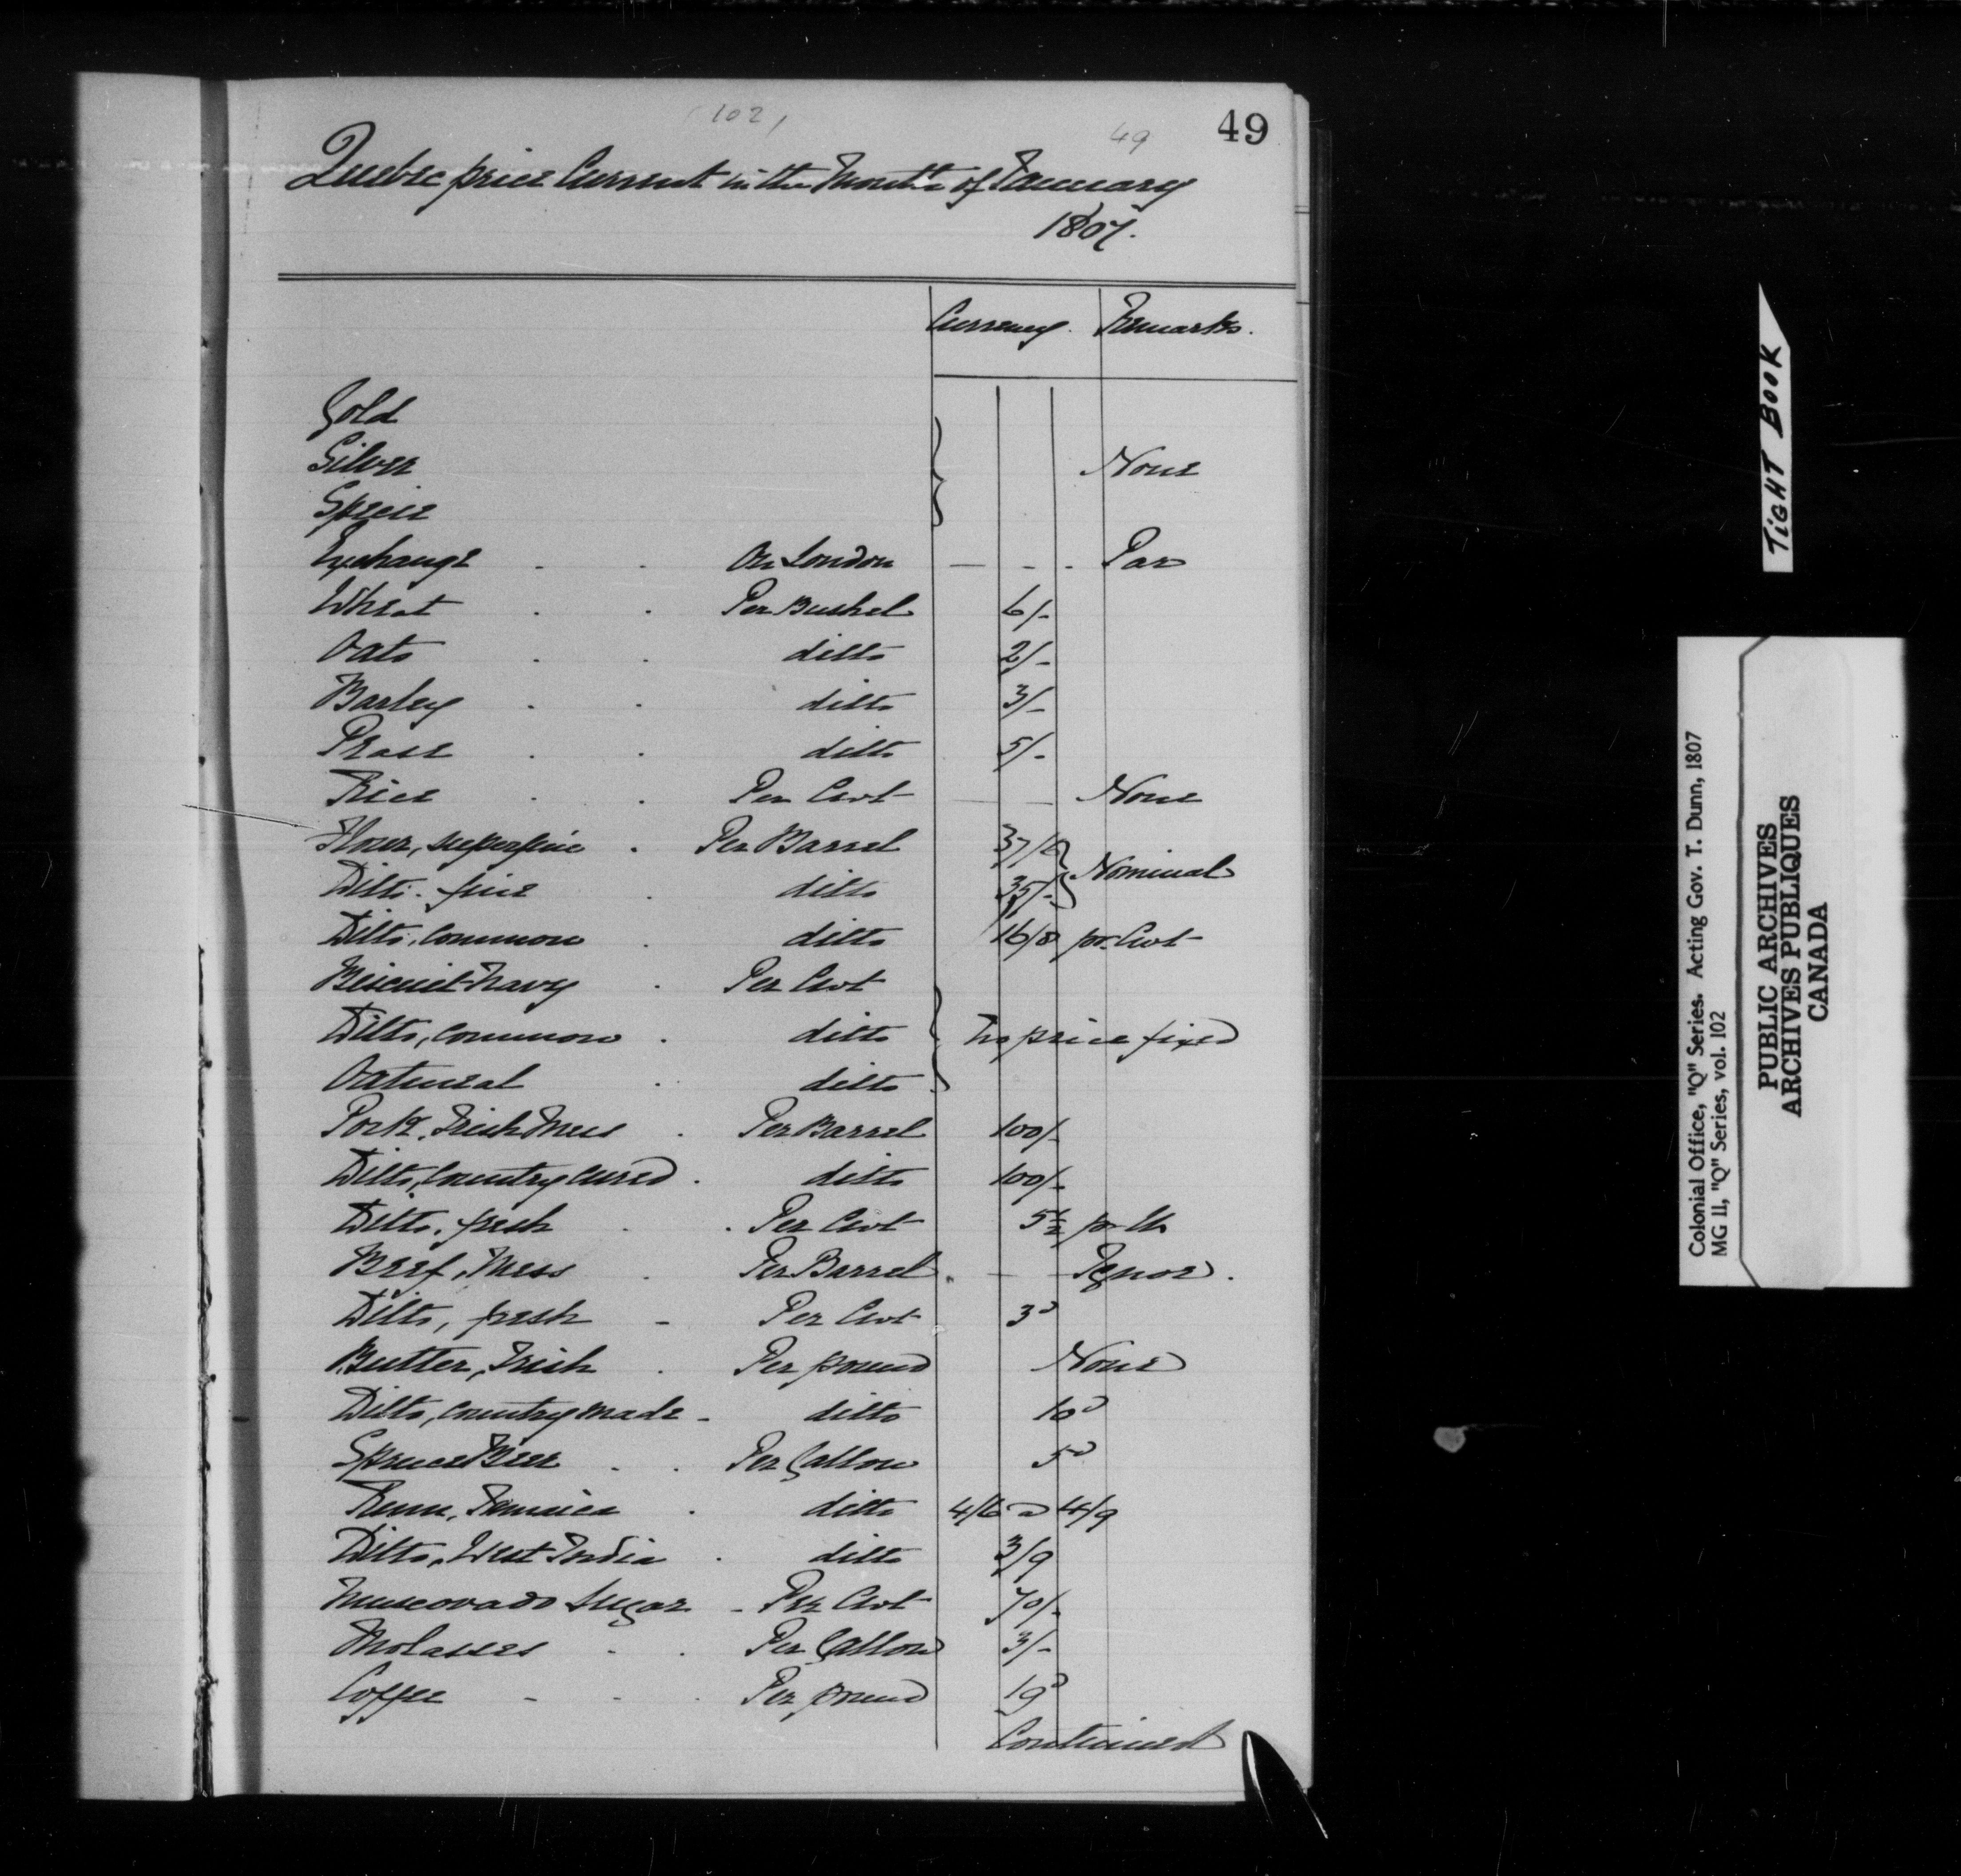 (102)
49
49
Quebec price Current in the Month of January
1807.
Currency. Remarks.
Gold
Silver None
Specie
Exchange . . On London — - . Par
Wheat . . Per Bushel 6/-
Oats . . ditto 2/-
Barley . . ditto 3/-
Pease . . ditto 5/-
Rice . . Per Cwt — — None
Flour, superfine . Per Barrel 37/6 } Nominal
Ditto. fine . ditto 35/-
Ditto, Common . ditto 16/8 pr. Cwt
Biscuit Navy . Per Cwt
Ditto, Common . ditto } No price fixed
Oatmeal . ditto
Pork, Irish Mess . Per Barrel 100/-
Ditto, Country cured . ditto 100/-
Ditto, fresh . . Per Cwt 5½ pr lb
Beef, Mess . Per Barrel . — —
Ditto, fresh - Per Cwt 3d
Butter, Irish . Per pound None
Ditto, Country made - ditto 10d
Spruce Beer . . Per Gallon 5d
Rum, Jamaica . ditto 4/6 a 4/9
Ditto, West India . ditto 3/9
Muscovado Sugar - Per Cwt 70/-
Molasses - . Per Gallon 3/-
Coffee - - . Per pound 19d
Continued
TIGHT BOOK
Colonial Office, "Q" Series. Acting Gov. T. Dunn, 1807
MG 11, "Q" Series, vol. 102
PUBLIC ARCHIVES
ARCHIVES PUBLIQUES
CANADA